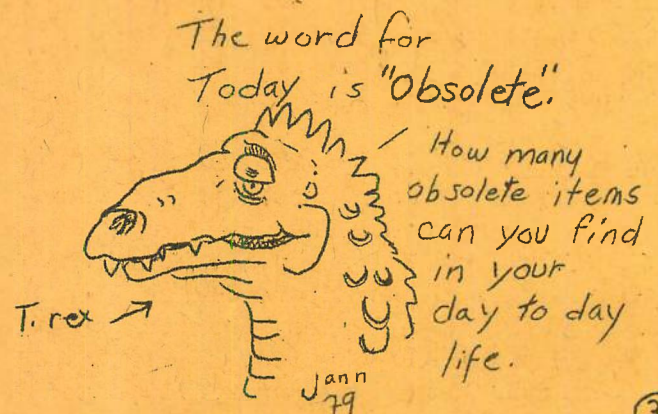 The word for
Today is "Obsolete".
How many
obsolete items
can you find
in your
day to day
life.
T. rex
Jann
79